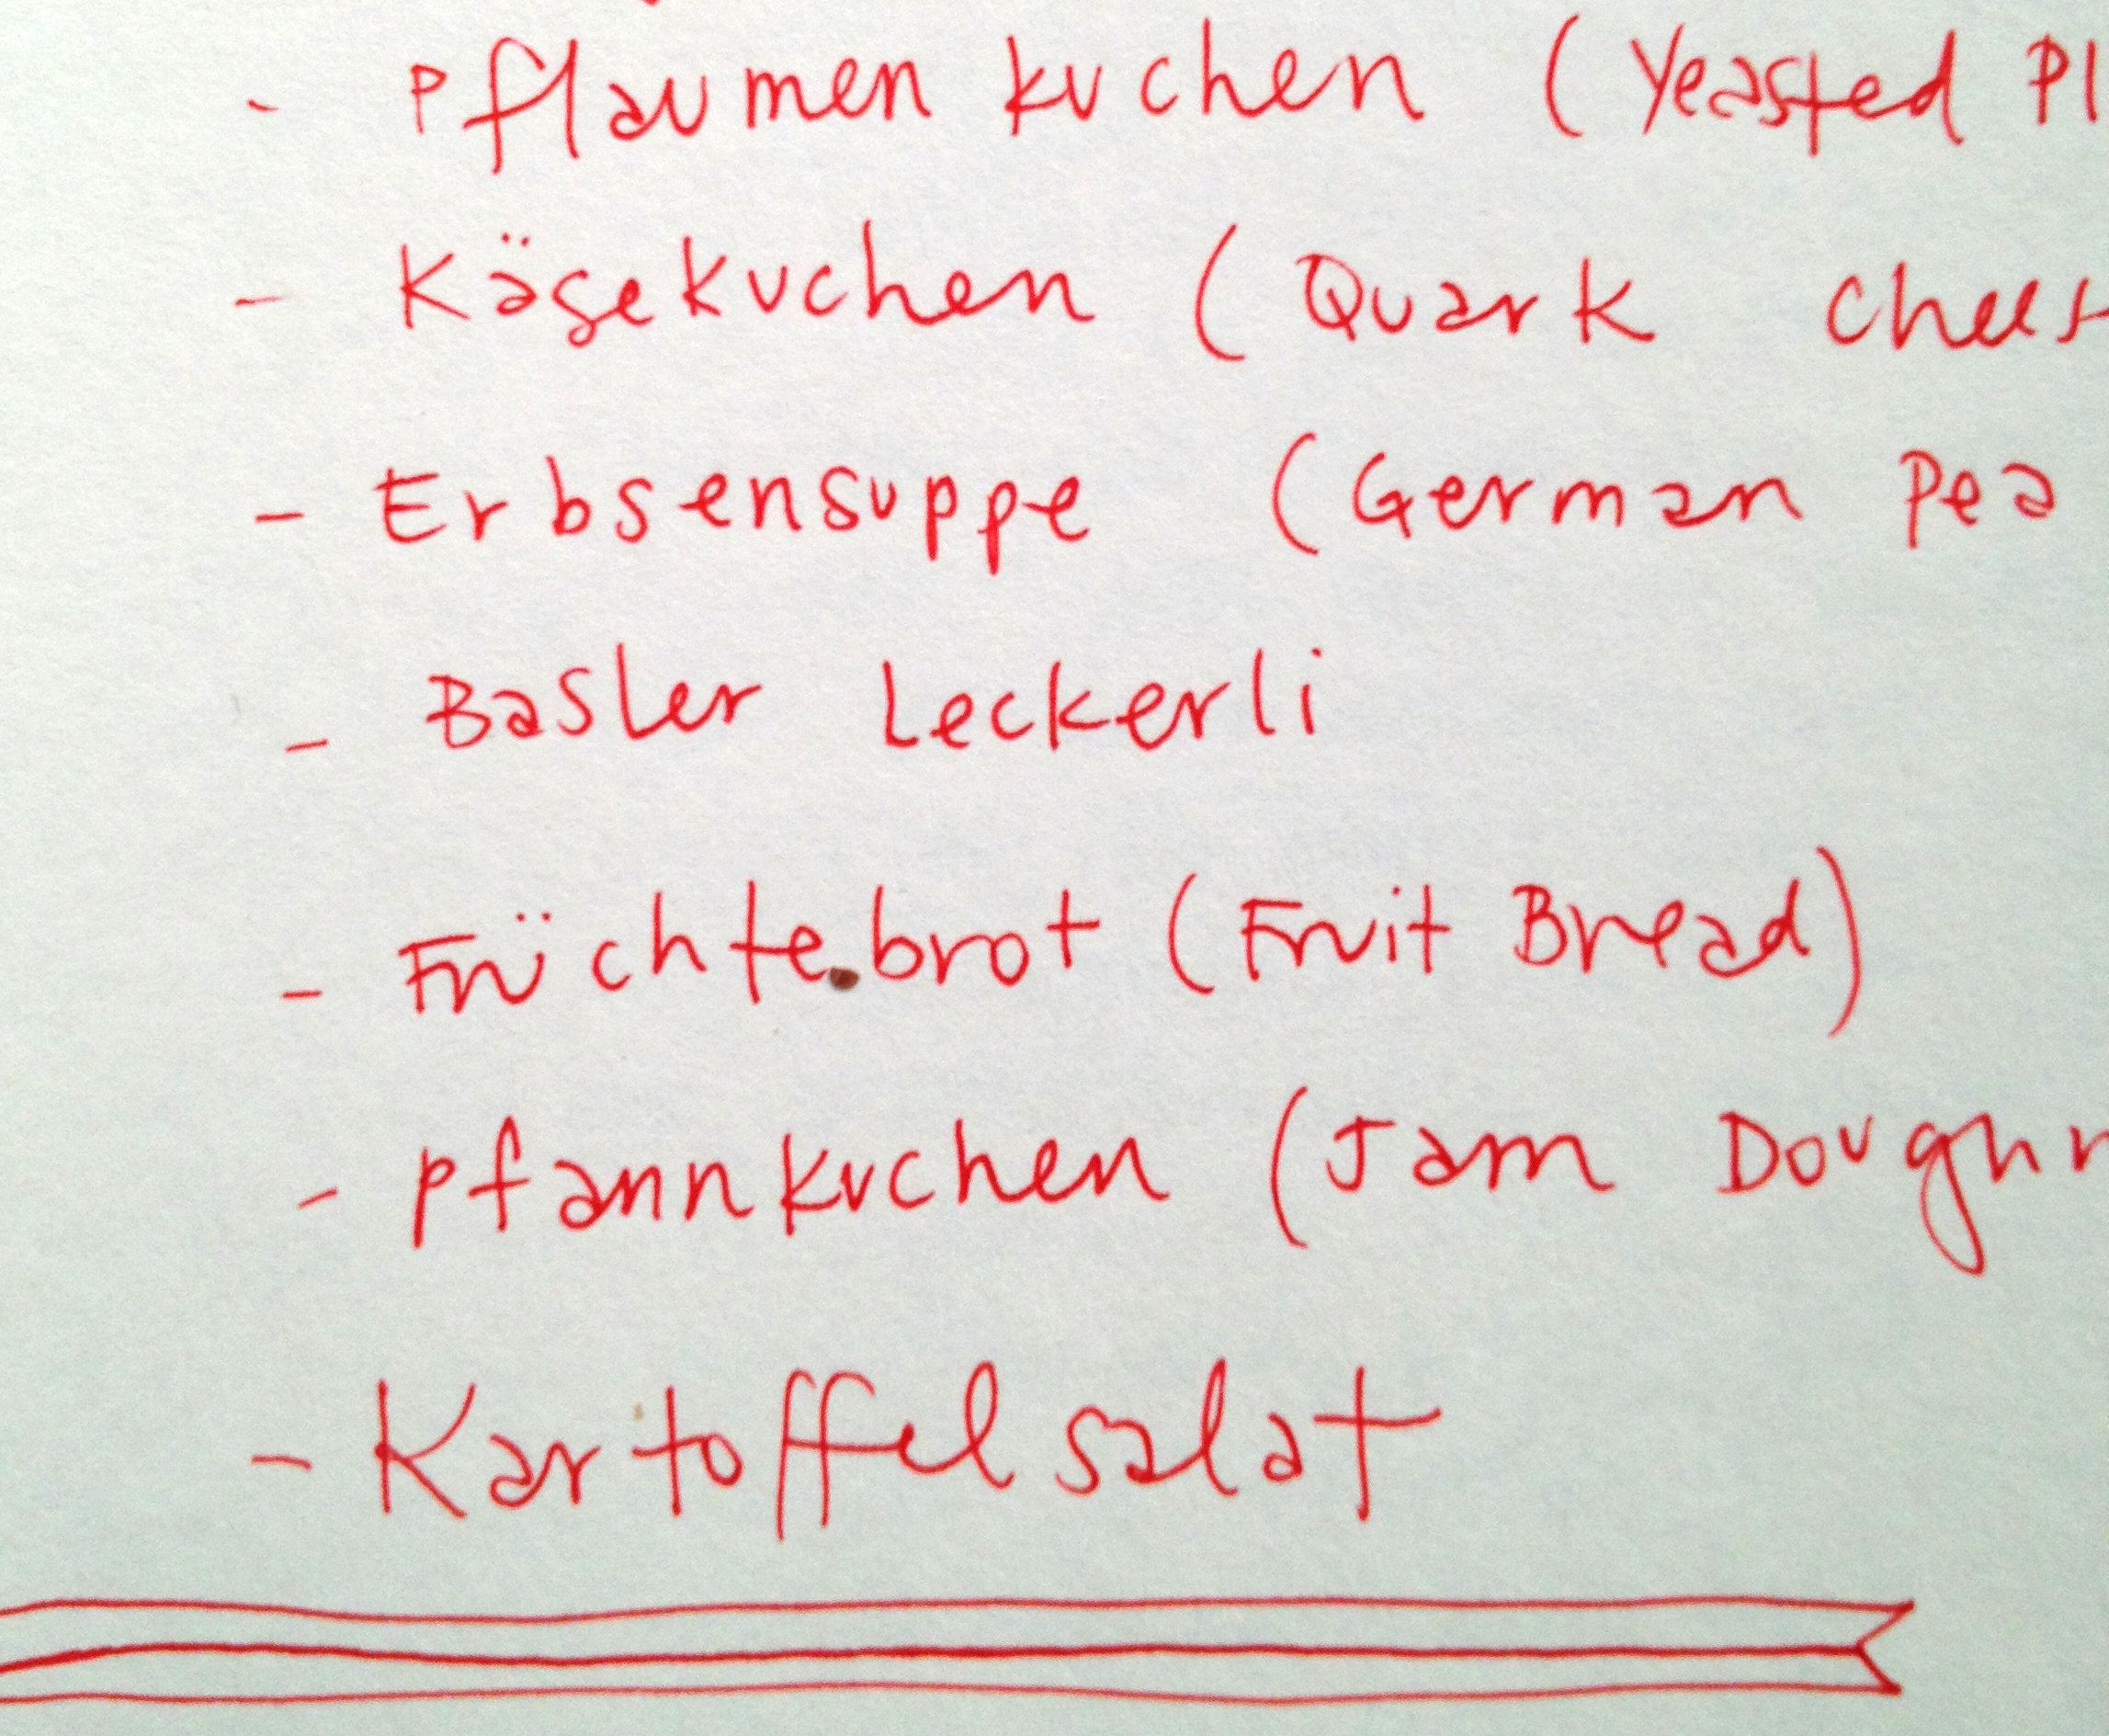 - Pflaumenkuchen (Yeasted Pl
- Käsekuchen (Quark Chees
- Erbsensuppe (German Pea
- Basler Leckerli
- Früchtebrot (Fruit Bread)
- Pfannkuchen (Jam Doughn
- Kartoffelsalat